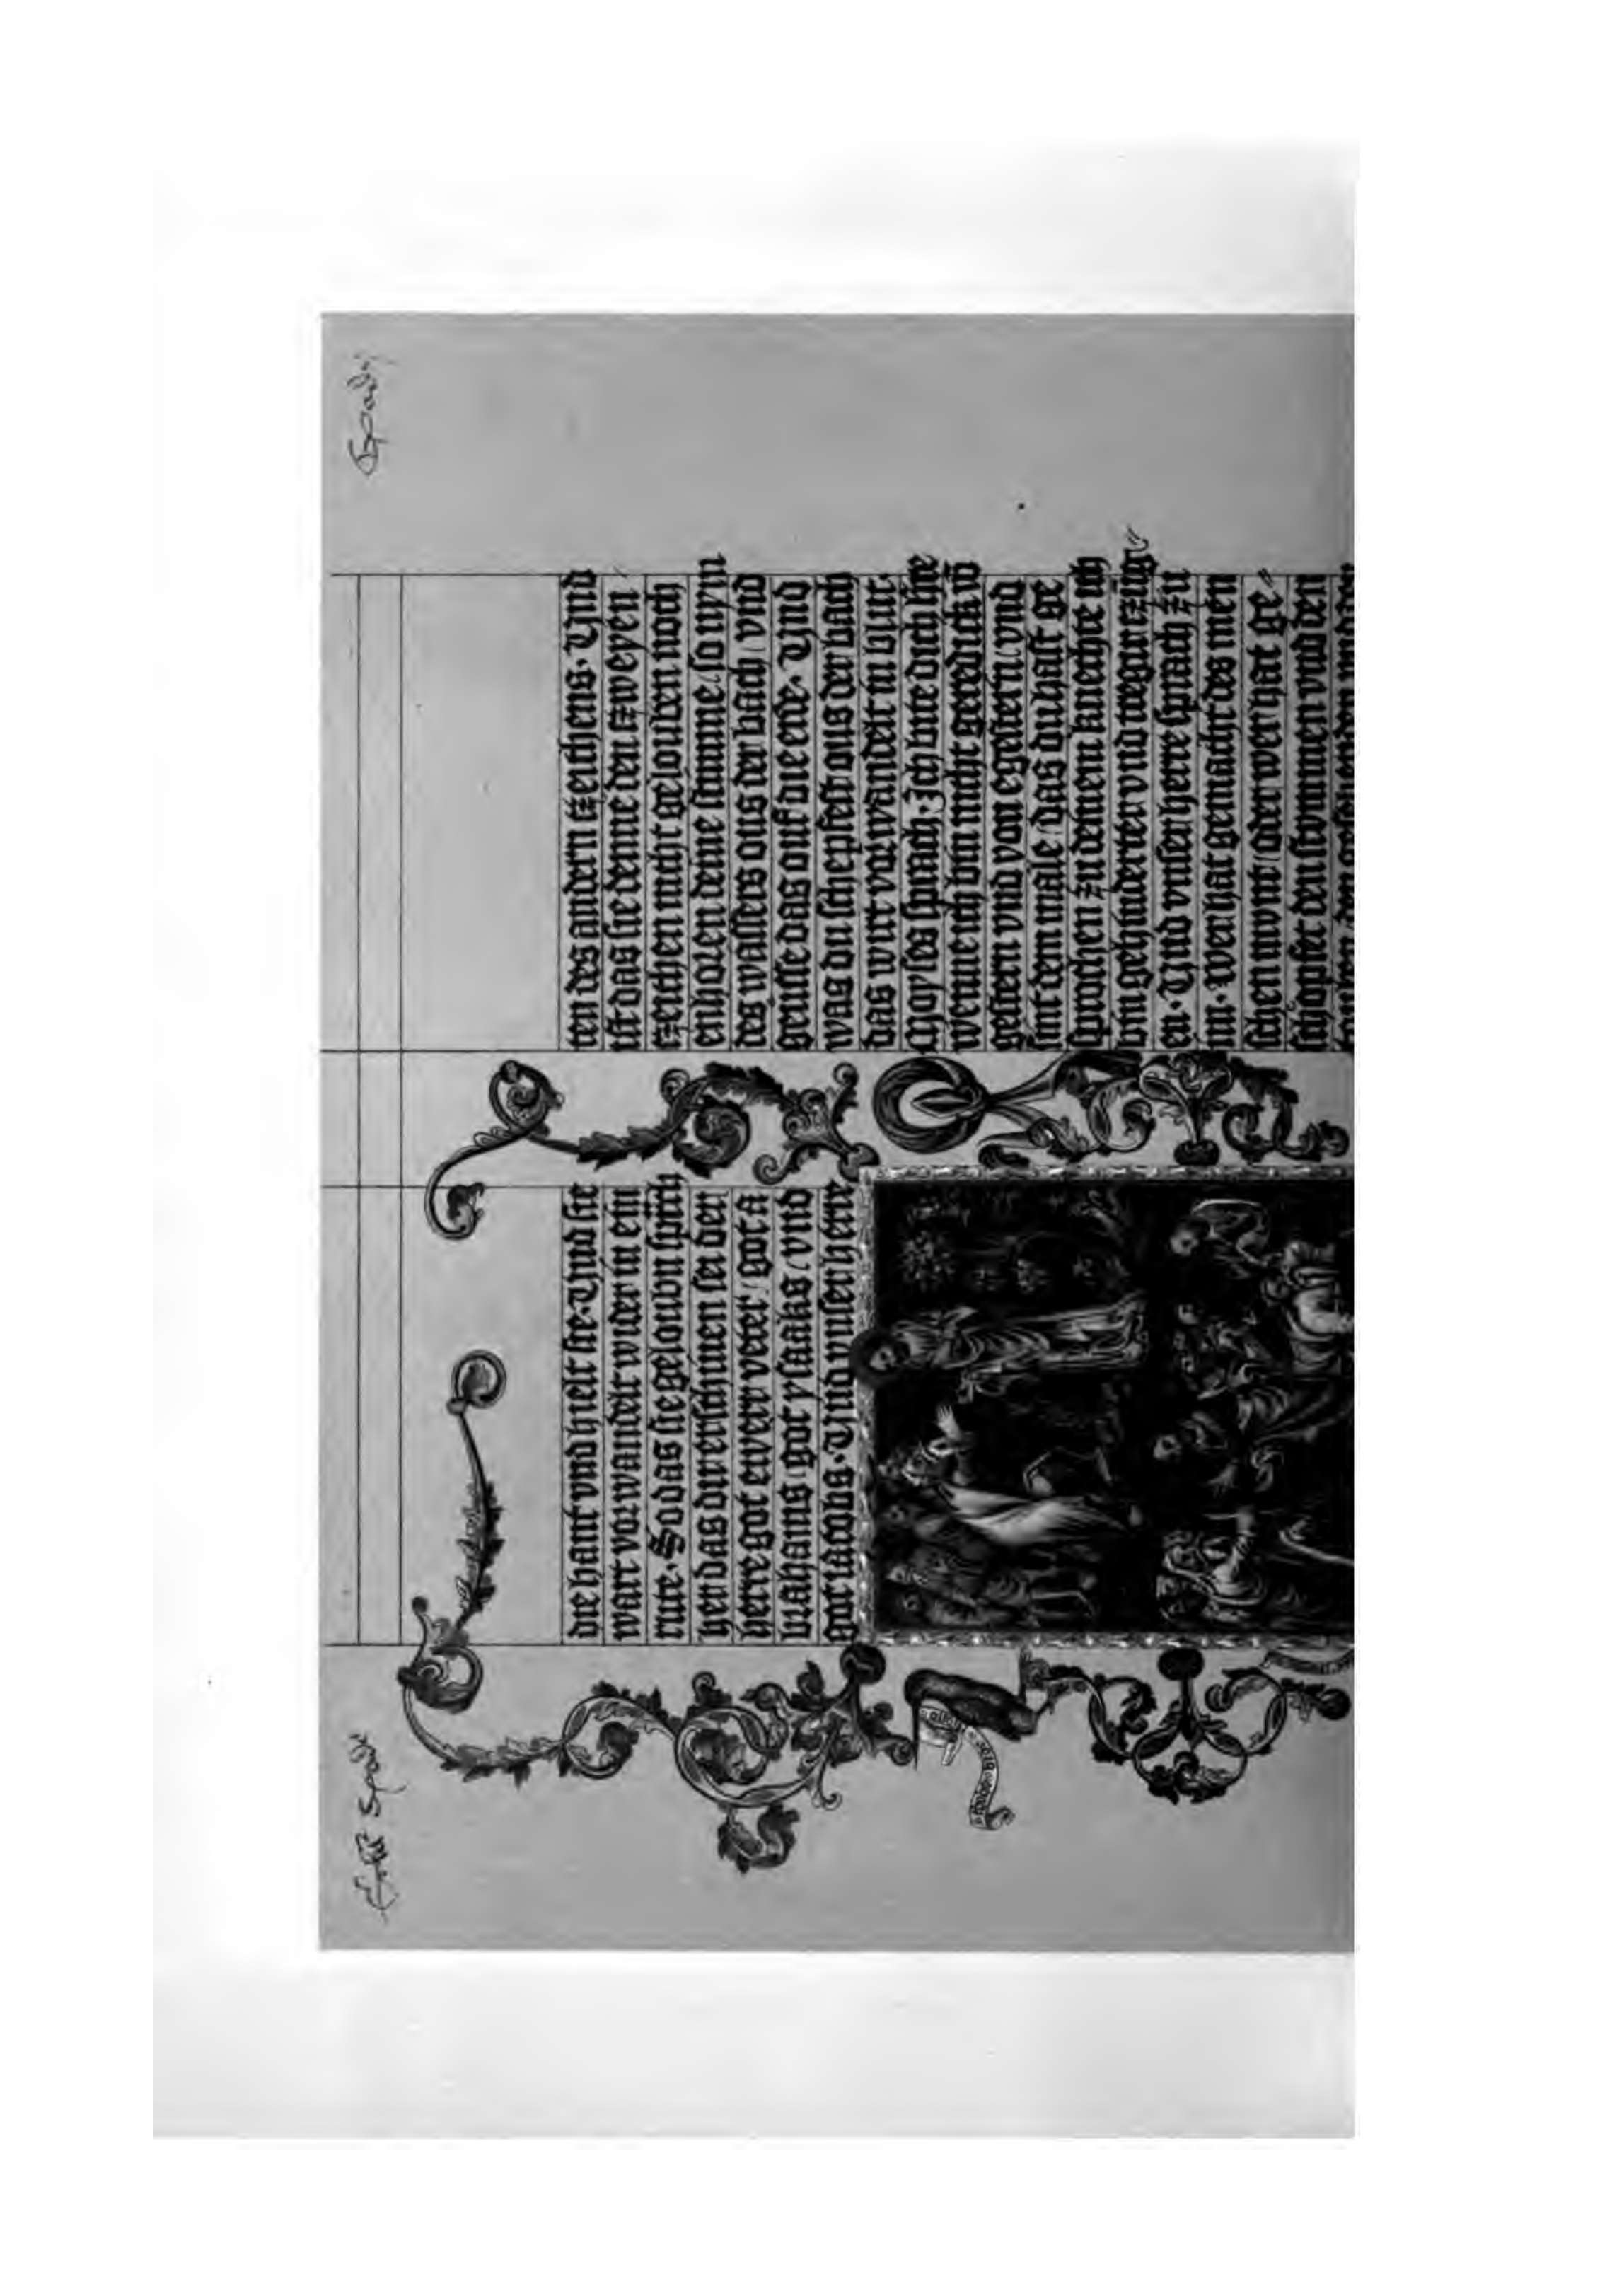 die hant vnd hielt sie · Vnd sie
wart vorwandelt wider in ein
rute · So das sie gelouben sprich
hen das dir erschinen sei der
herre got ewer veter / got a
brahams / got ysaaks / vnd
got iacobs · Vnd vnser herre
ten des andern tzeichens · Vnd
ist das sie denne den tzweyen
tzeichen nicht gelouben noch
enhoren deine stimme / so nym
des wassers ous der bach / vnd
geusse das ouf die erde · Vnd
was du schepfest ous der bach
das wirt vorwandelt in blut ·
Moyses sprach · Ich bitte dich h're
wenne ich bin nicht geredick vō
gestern vnd von egestern vnd
sint dem male / das du hast ge
sprochen zu deinem knechte ich
bin gehinderter vnd tregerer zung
en · Vnd vnser herre sprach zu
im · Wer hat gemacht des men
schen munt / oder wer hat ge
schopfet den stummen vnd den